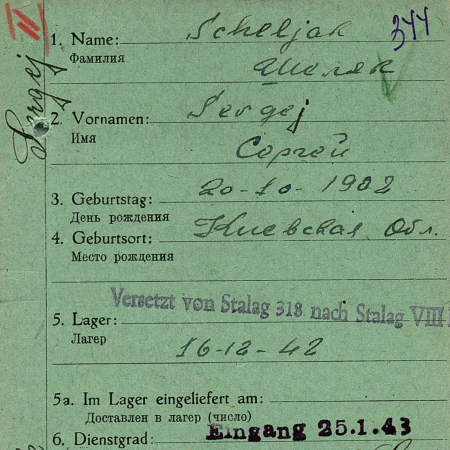 II
344
Sergej
1. Name: Scheljak
Фамилия Шеляк
2. Vornamen: Sergej
Имя Сергей
3. Geburtstag: 20-10-1902
День рождения
4. Geburtsort: Киевская Обл.
Место рождения
Versetzt von Stalag 318 nach Stalag VIII
5. Lager:
Лагер 16-12-42
5a. Im Lager eingeliefert am:
Доставлен в лагер (число)
Eingang 25.1.43
6. Dienstgrad: